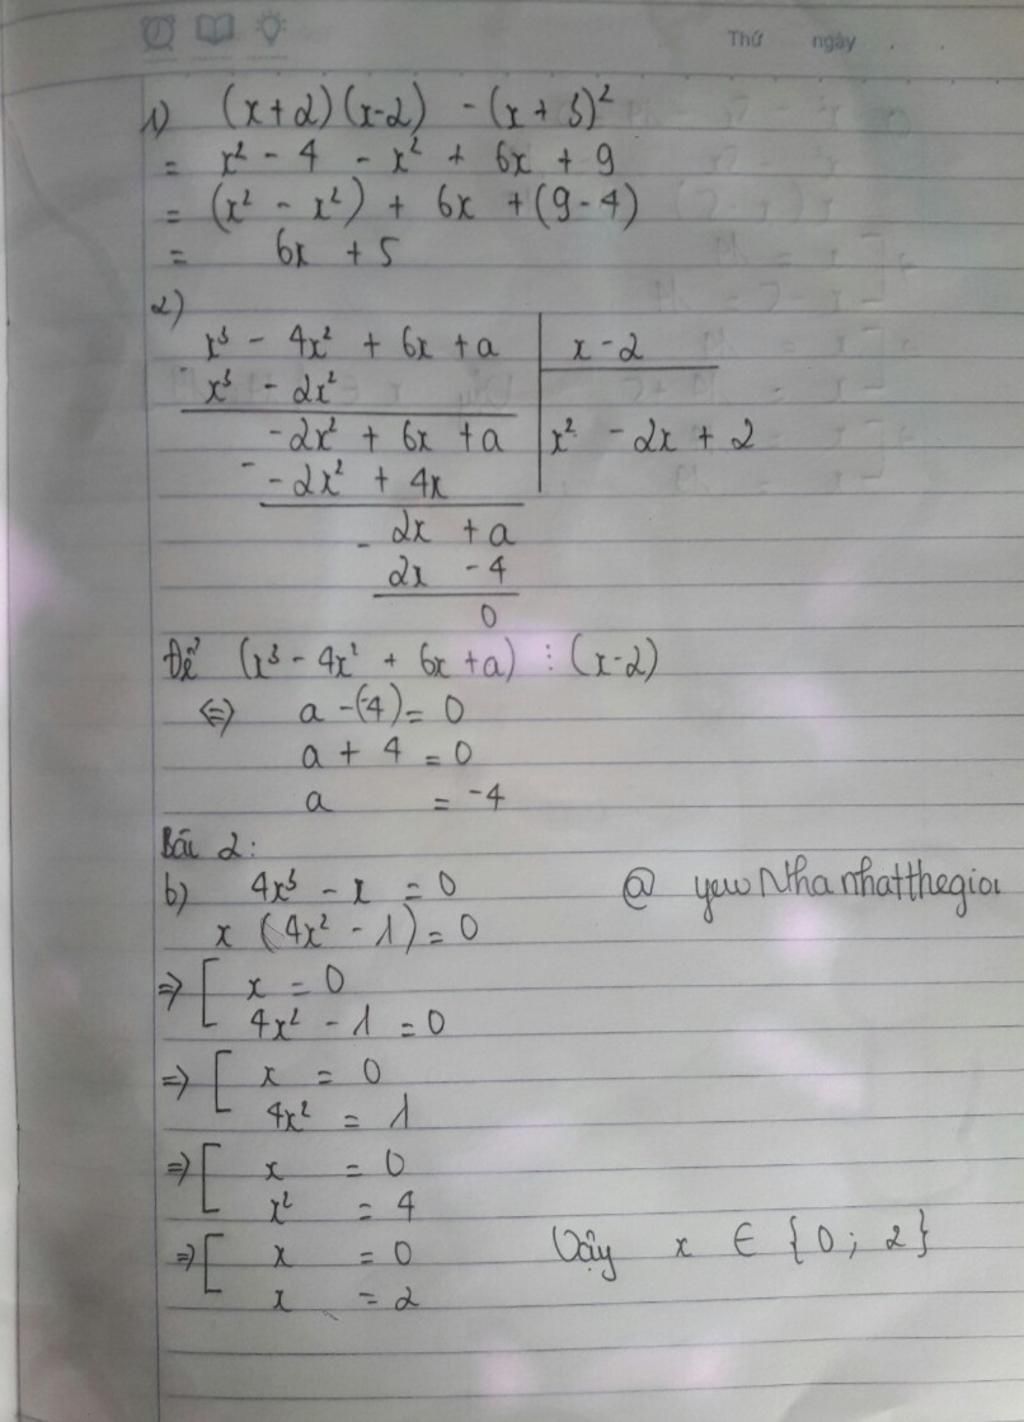 Thứ ngày . .
1) (x+2)(x-2) - (x + 3)²
= x² - 4 - x² + 6x + 9
= (x² - x²) + 6x + (9-4)
= 6x + 5
2)
x³ - 4x² + 6x + a | x - 2
- x³ - 2x²
-2x² + 6x + a | x² - 2x + 2
- -2x² + 4x
- 2x + a
2x - 4
0
Để (x³ - 4x² + 6x + a) ⋮ (x-2)
⇔ a -(-4) = 0
a + 4 = 0
a = -4
Bài 2:
b) 4x³ - x = 0 @ yewNthanhatthegioi
x (4x² - 1) = 0
⇒ [ x = 0
4x² - 1 = 0
⇒ [ x = 0
4x² = 1
⇒ [ x = 0
x² = 4
⇒ [ x = 0 Vậy x ∈ {0; 2}
x = 2